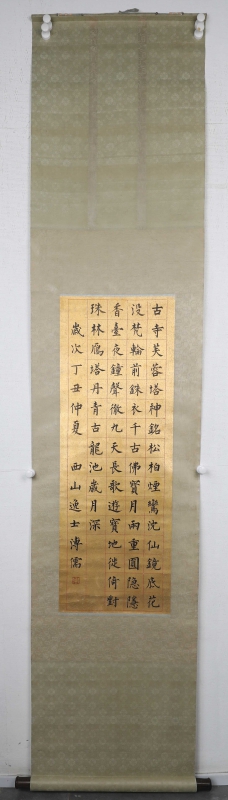 古寺芙蓉塔神銘松柏煙鸞沈仙鏡底花
沒梵輪前銖衣千古佛寶月兩重圓隱隱
香臺夜鐘聲徹九天長歌遊寶地徙倚對
珠林鴈塔丹青古龍池歲月深
歲次丁丑仲夏 西山逸士溥儒